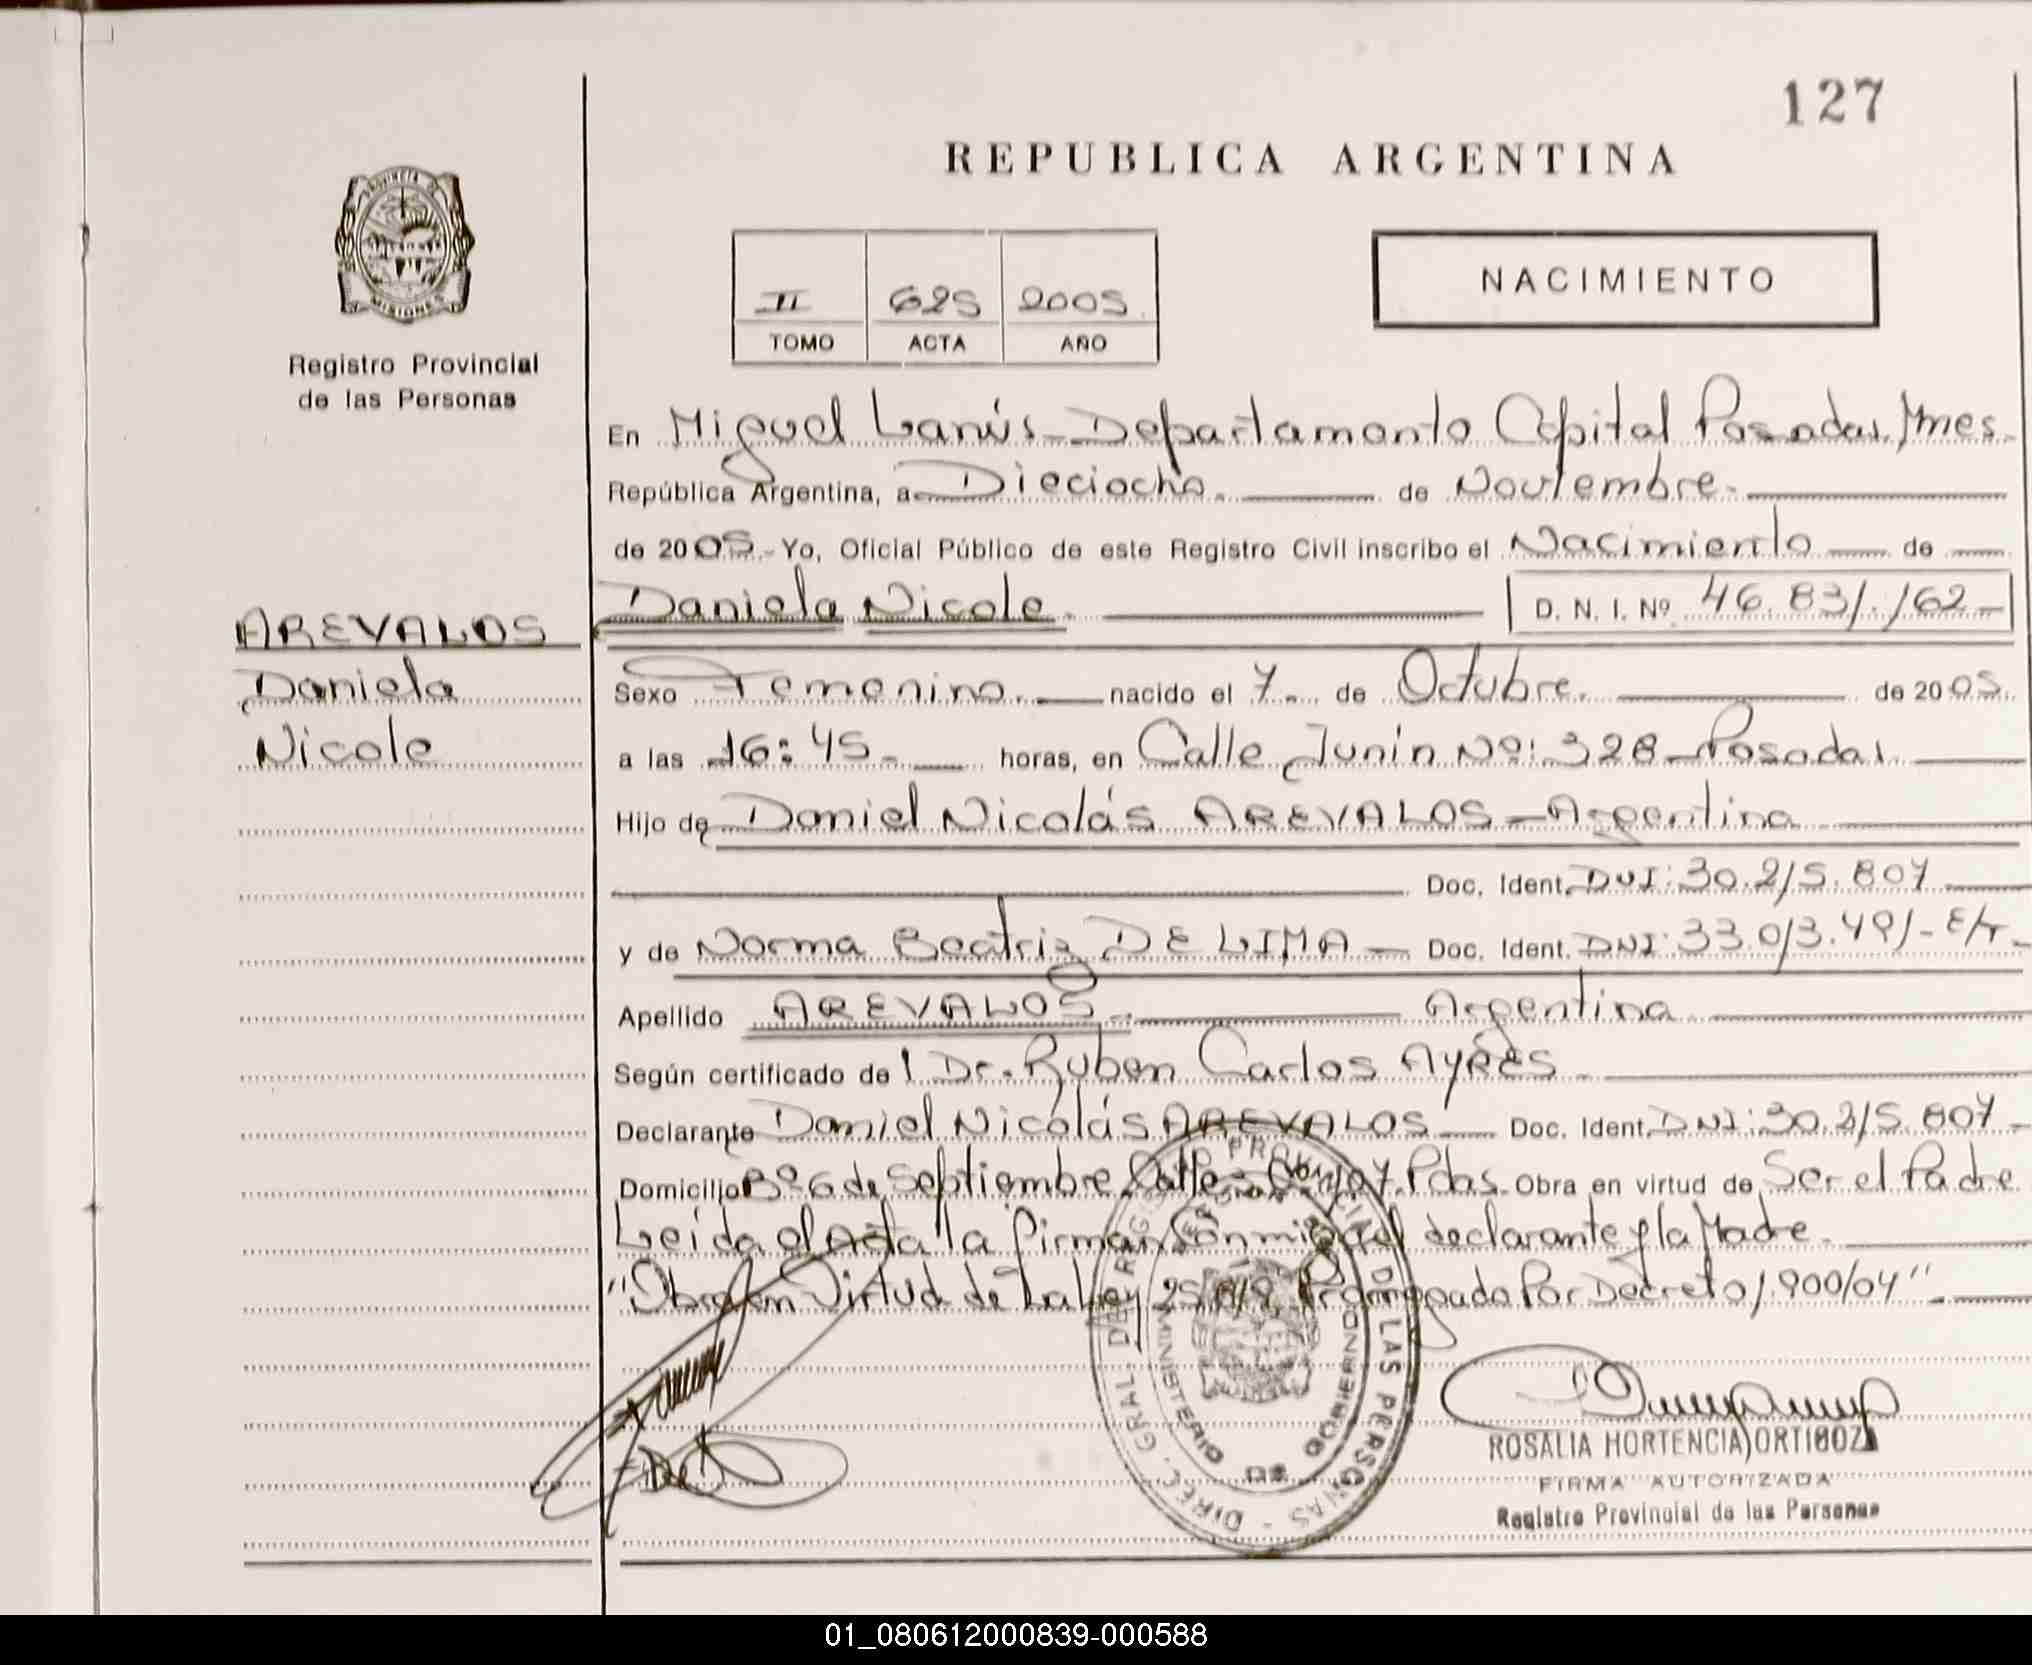 127
REPUBLICA ARGENTINA
PROVINCIA DE
MISIONES
Registro Provincial
de las Personas
II 625 2005
TOMO ACTA AÑO
NACIMIENTO
En Miguel Lanús - Departamento Capital Posadas, Mnes.
República Argentina, a Dieciocho. de Noviembre.
de 2005 - Yo, Oficial Público de este Registro Civil inscribo el Nacimiento de
Daniela Nicole. D. N. I. Nº 46.831.162-
AREVALOS
Daniela
Nicole
Sexo Femenino. nacido el 7. de Octubre. de 2005.
a las 16:45. horas, en Calle Junín Nº: 328 - Posadas.
Hijo de Daniel Nicolás AREVALOS - Argentina
Doc. Ident. DNI: 30.215.807
y de Norma Beatriz DE LIMA - Doc. Ident. DNI: 33.013.491-
Apellido AREVALOS. Argentina
Según certificado de l Dr. Ruben Carlos AYRES
Declarante Daniel Nicolás AREVALOS - Doc. Ident. DNI: 30.215.807 -
Domicilio Bº 6 de Septiembre Calle Pdas. Obra en virtud de Ser el Padre
Leída el Acta la firman conmigo el declarante y la Madre.
"Obra en Virtud de La Ley Por Decreto 1.900/04".
DIREC. GRAL. DEL REGISTRO PROVINCIAL DE LAS PERSONAS
MINISTERIO DE GOBIERNO
ROSALIA HORTENCIA ORTIGOZA
FIRMA AUTORIZADA
Registro Provincial de las Personas
01_080612000839-000588